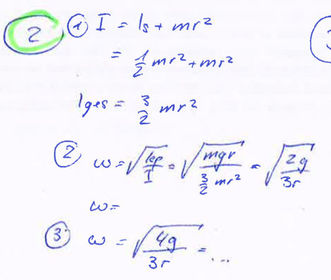 2 ① I = Is + mr²
= 1/2 mr² + mr²
Iges = 3/2 mr²
② ω = √(/I) = √(mgr / (3/2 mr²)) = √(2g/3r)
ω =
③ ω = √(4g/3r) = ...